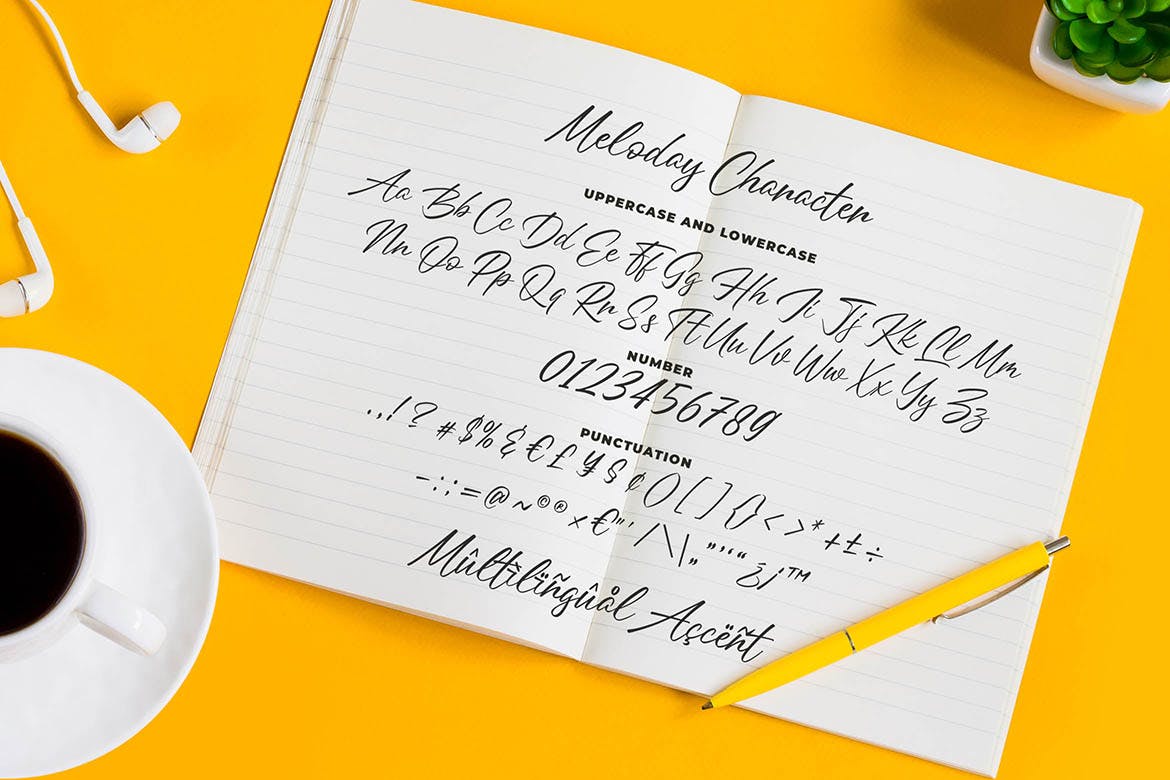 Meloday Character
UPPERCASE AND LOWERCASE
Aa Bb Cc Dd Ee Ff Gg Hh Ii Jj Kk Ll Mm
Nn Oo Pp Qq Rr Ss Tt Uu Vv Ww Xx Yy Zz
NUMBER
0123456789
PUNCTUATION
.,!? #$%&€£¥§¢()[]{}<>*+±÷
-:;=@~©®×€"'/\|„"'‘“¿¡™
Mûltîlïñgûål Aşcëñt